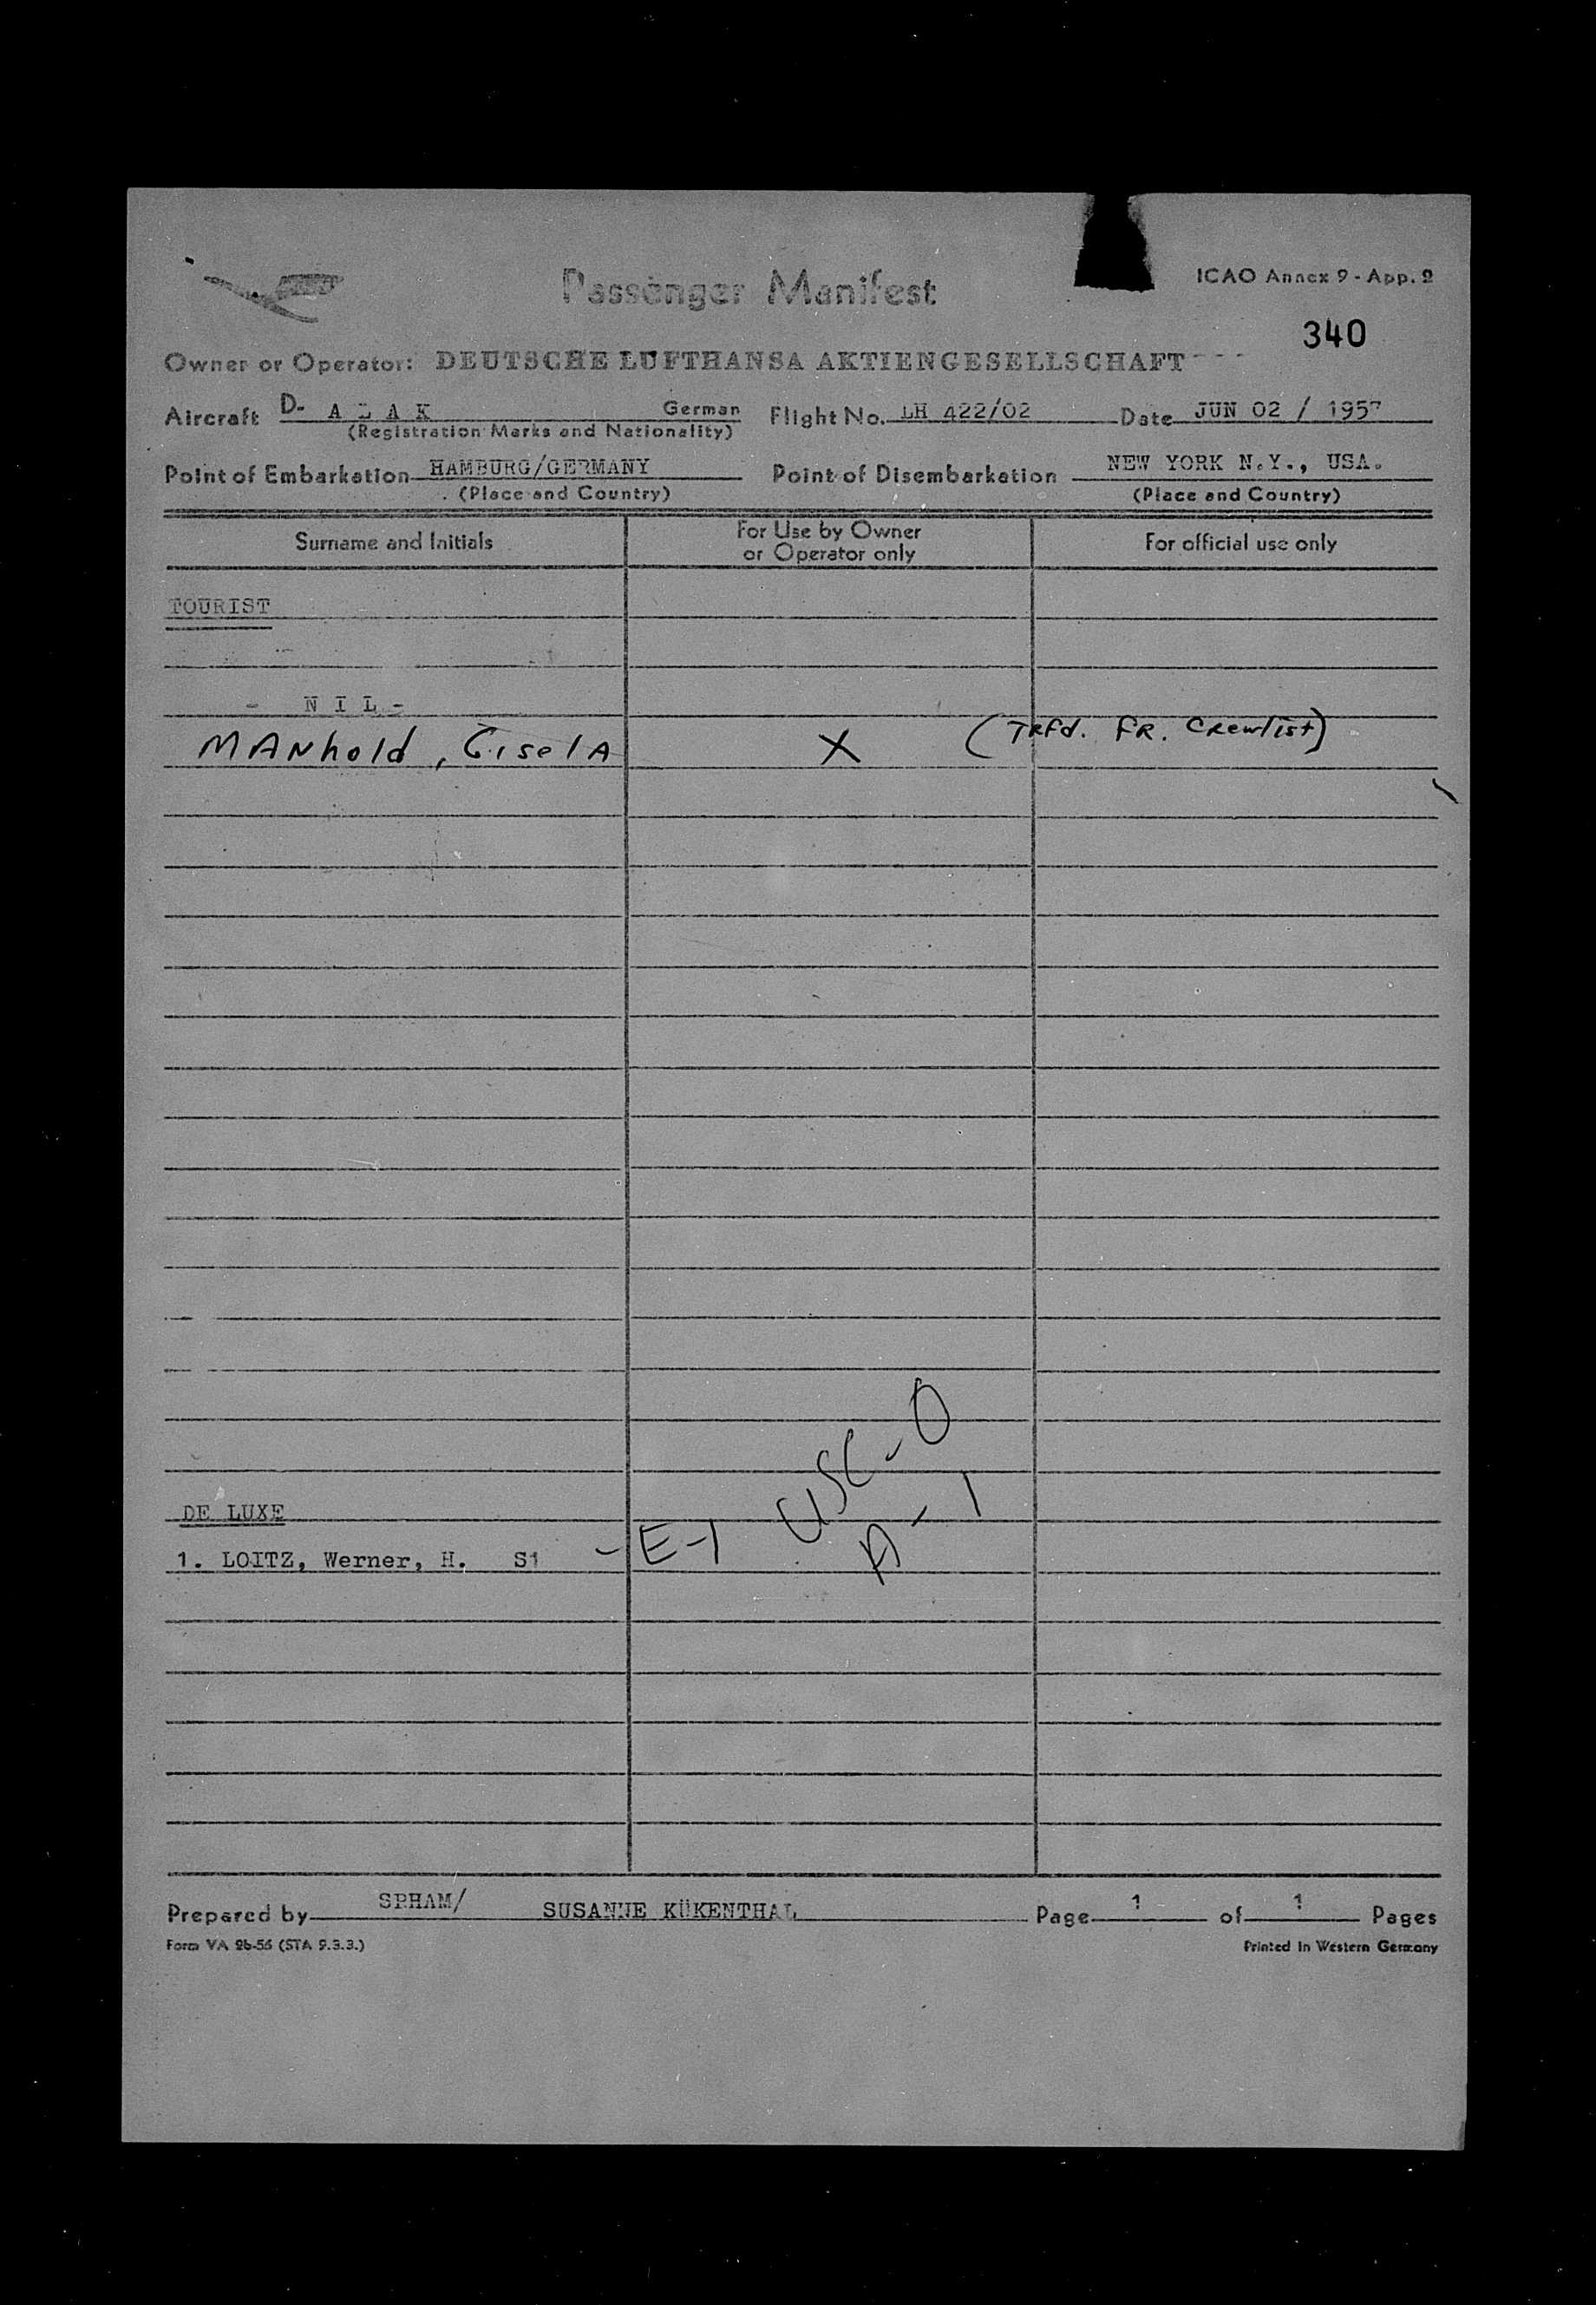 Passenger Manifest
ICAO Annex 9 - App. 2
340
Owner or Operator: DEUTSCHE LUFTHANSA AKTIENGESELLSCHAFT - - -
Aircraft D- A L A K German Flight No. LH 422/02 Date JUN 02 / 1957
(Registration Marks and Nationality)
Point of Embarkation HAMBURG/GERMANY Point of Disembarkation NEW YORK N.Y., USA.
(Place and Country) (Place and Country)
Surname and Initials For Use by Owner or Operator only For official use only
TOURIST
- N I L -
MANhold, GiselA X (TRfd. FR. Crewlist)
USC - 0
A - 1
DE LUXE
1. LOITZ, Werner, H. S1 - E-1
Prepared by SPHAM/ SUSANNE KÜKENTHAL Page 1 of 1 Pages
Form VA 2b-56 (STA 9.3.3.) Printed in Western Germany